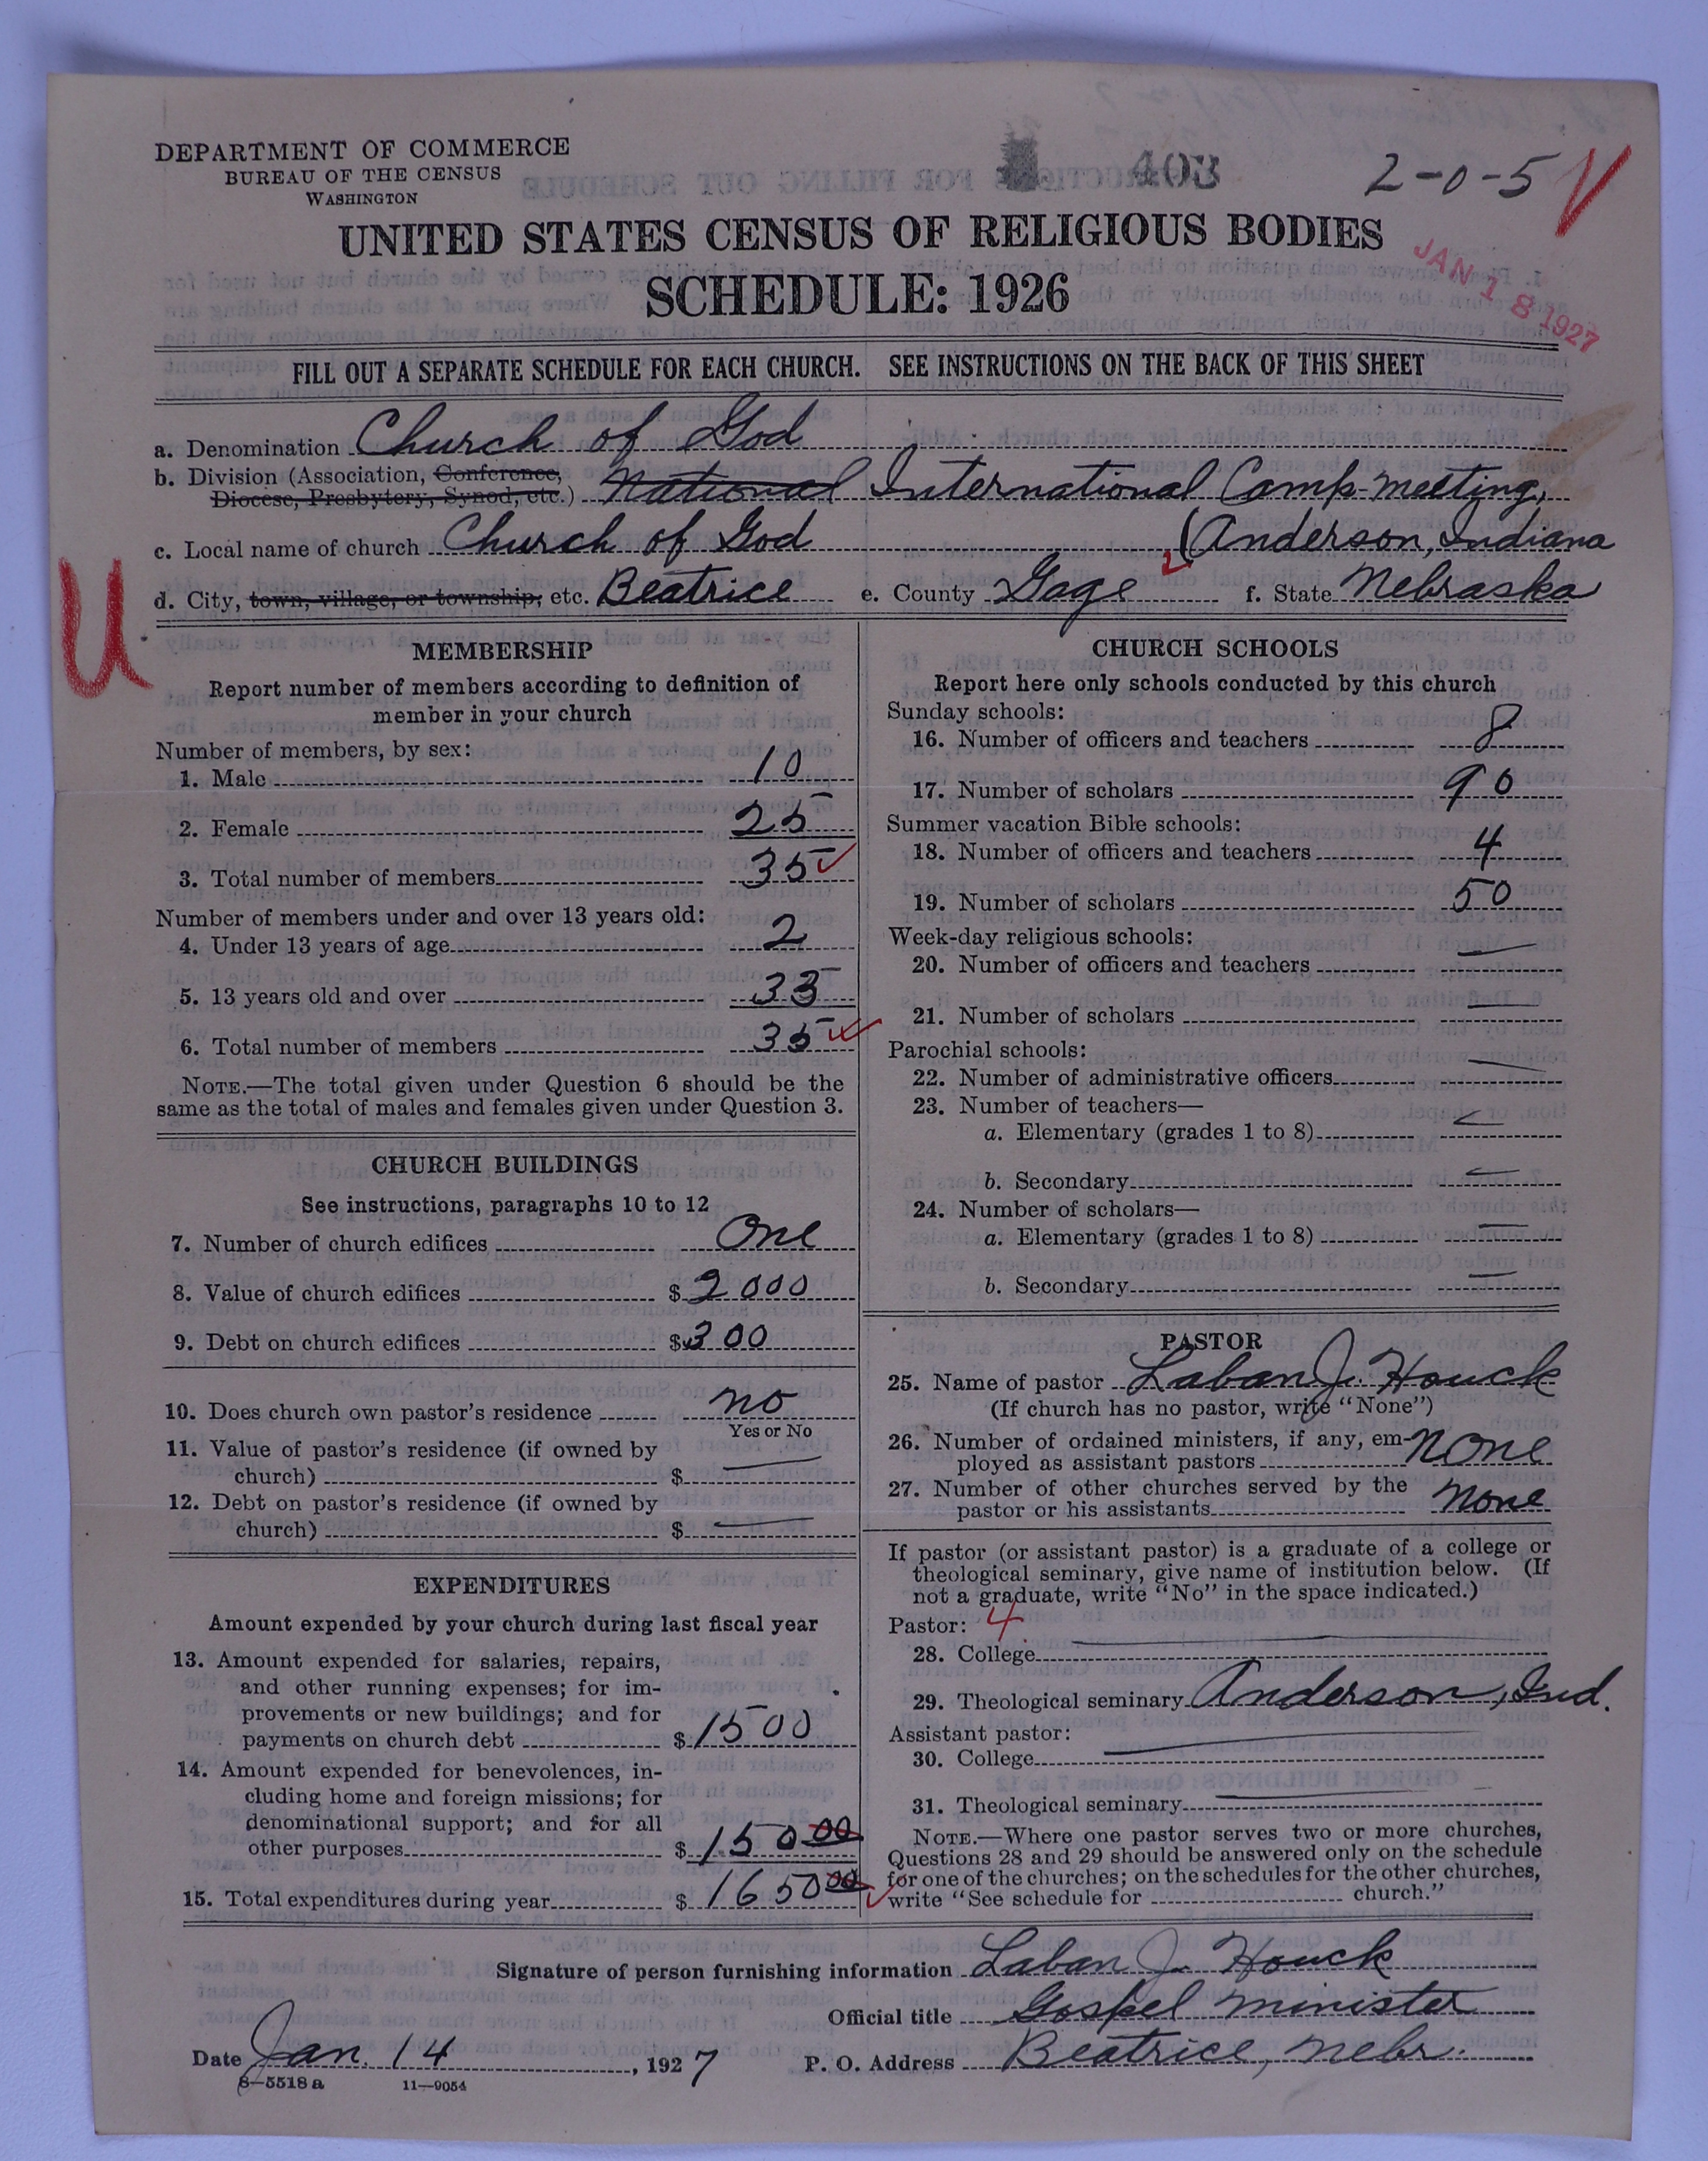 DEPARTMENT OF COMMERCE
BUREAU OF THE CENSUS
WASHINGTON
403
2-0-5
UNITED STATES CENSUS OF RELIGIOUS BODIES
SCHEDULE: 1926
JAN 18 1927
FILL OUT A SEPARATE SCHEDULE FOR EACH CHURCH. SEE INSTRUCTIONS ON THE BACK OF THIS SHEET
a. Denomination Church of God
b. Division (Association, Conference,
Diocese, Presbytery, Synod, etc.) National International Camp-meeting,
c. Local name of church Church of God (Anderson, Indiana
d. City, town, village, or township, etc. Beatrice e. County Gage f. State Nebraska
U
MEMBERSHIP
Report number of members according to definition of
member in your church
Number of members, by sex:
1. Male 10
2. Female 25
3. Total number of members 35
Number of members under and over 13 years old:
4. Under 13 years of age 2
5. 13 years old and over 33
6. Total number of members 35
NOTE.—The total given under Question 6 should be the
same as the total of males and females given under Question 3.
CHURCH BUILDINGS
See instructions, paragraphs 10 to 12
7. Number of church edifices One
8. Value of church edifices $2000
9. Debt on church edifices $300
10. Does church own pastor's residence no
Yes or No
11. Value of pastor's residence (if owned by
church) $ —
12. Debt on pastor's residence (if owned by
church) $ —
EXPENDITURES
Amount expended by your church during last fiscal year
13. Amount expended for salaries, repairs,
and other running expenses; for im-
provements or new buildings; and for
payments on church debt $1500
14. Amount expended for benevolences, in-
cluding home and foreign missions; for
denominational support; and for all
other purposes $150 00
15. Total expenditures during year $1650 00
CHURCH SCHOOLS
Report here only schools conducted by this church
Sunday schools:
16. Number of officers and teachers 8
17. Number of scholars 90
Summer vacation Bible schools:
18. Number of officers and teachers 4
19. Number of scholars 50
Week-day religious schools:
20. Number of officers and teachers —
21. Number of scholars —
Parochial schools:
22. Number of administrative officers —
23. Number of teachers—
a. Elementary (grades 1 to 8) —
b. Secondary —
24. Number of scholars—
a. Elementary (grades 1 to 8) —
b. Secondary —
PASTOR
25. Name of pastor Laban J. Houck
(If church has no pastor, write "None")
26. Number of ordained ministers, if any, em-
ployed as assistant pastors none
27. Number of other churches served by the
pastor or his assistants none
If pastor (or assistant pastor) is a graduate of a college or
theological seminary, give name of institution below. (If
not a graduate, write "No" in the space indicated.)
Pastor: 4
28. College —
29. Theological seminary Anderson, Ind.
Assistant pastor:
30. College —
31. Theological seminary —
NOTE.—Where one pastor serves two or more churches,
Questions 28 and 29 should be answered only on the schedule
for one of the churches; on the schedules for the other churches,
write "See schedule for church."
Signature of person furnishing information Laban J. Houck
Official title Gospel minister
Date Jan. 14, 1927 P. O. Address Beatrice, Nebr.
8—5518 a 11—9054